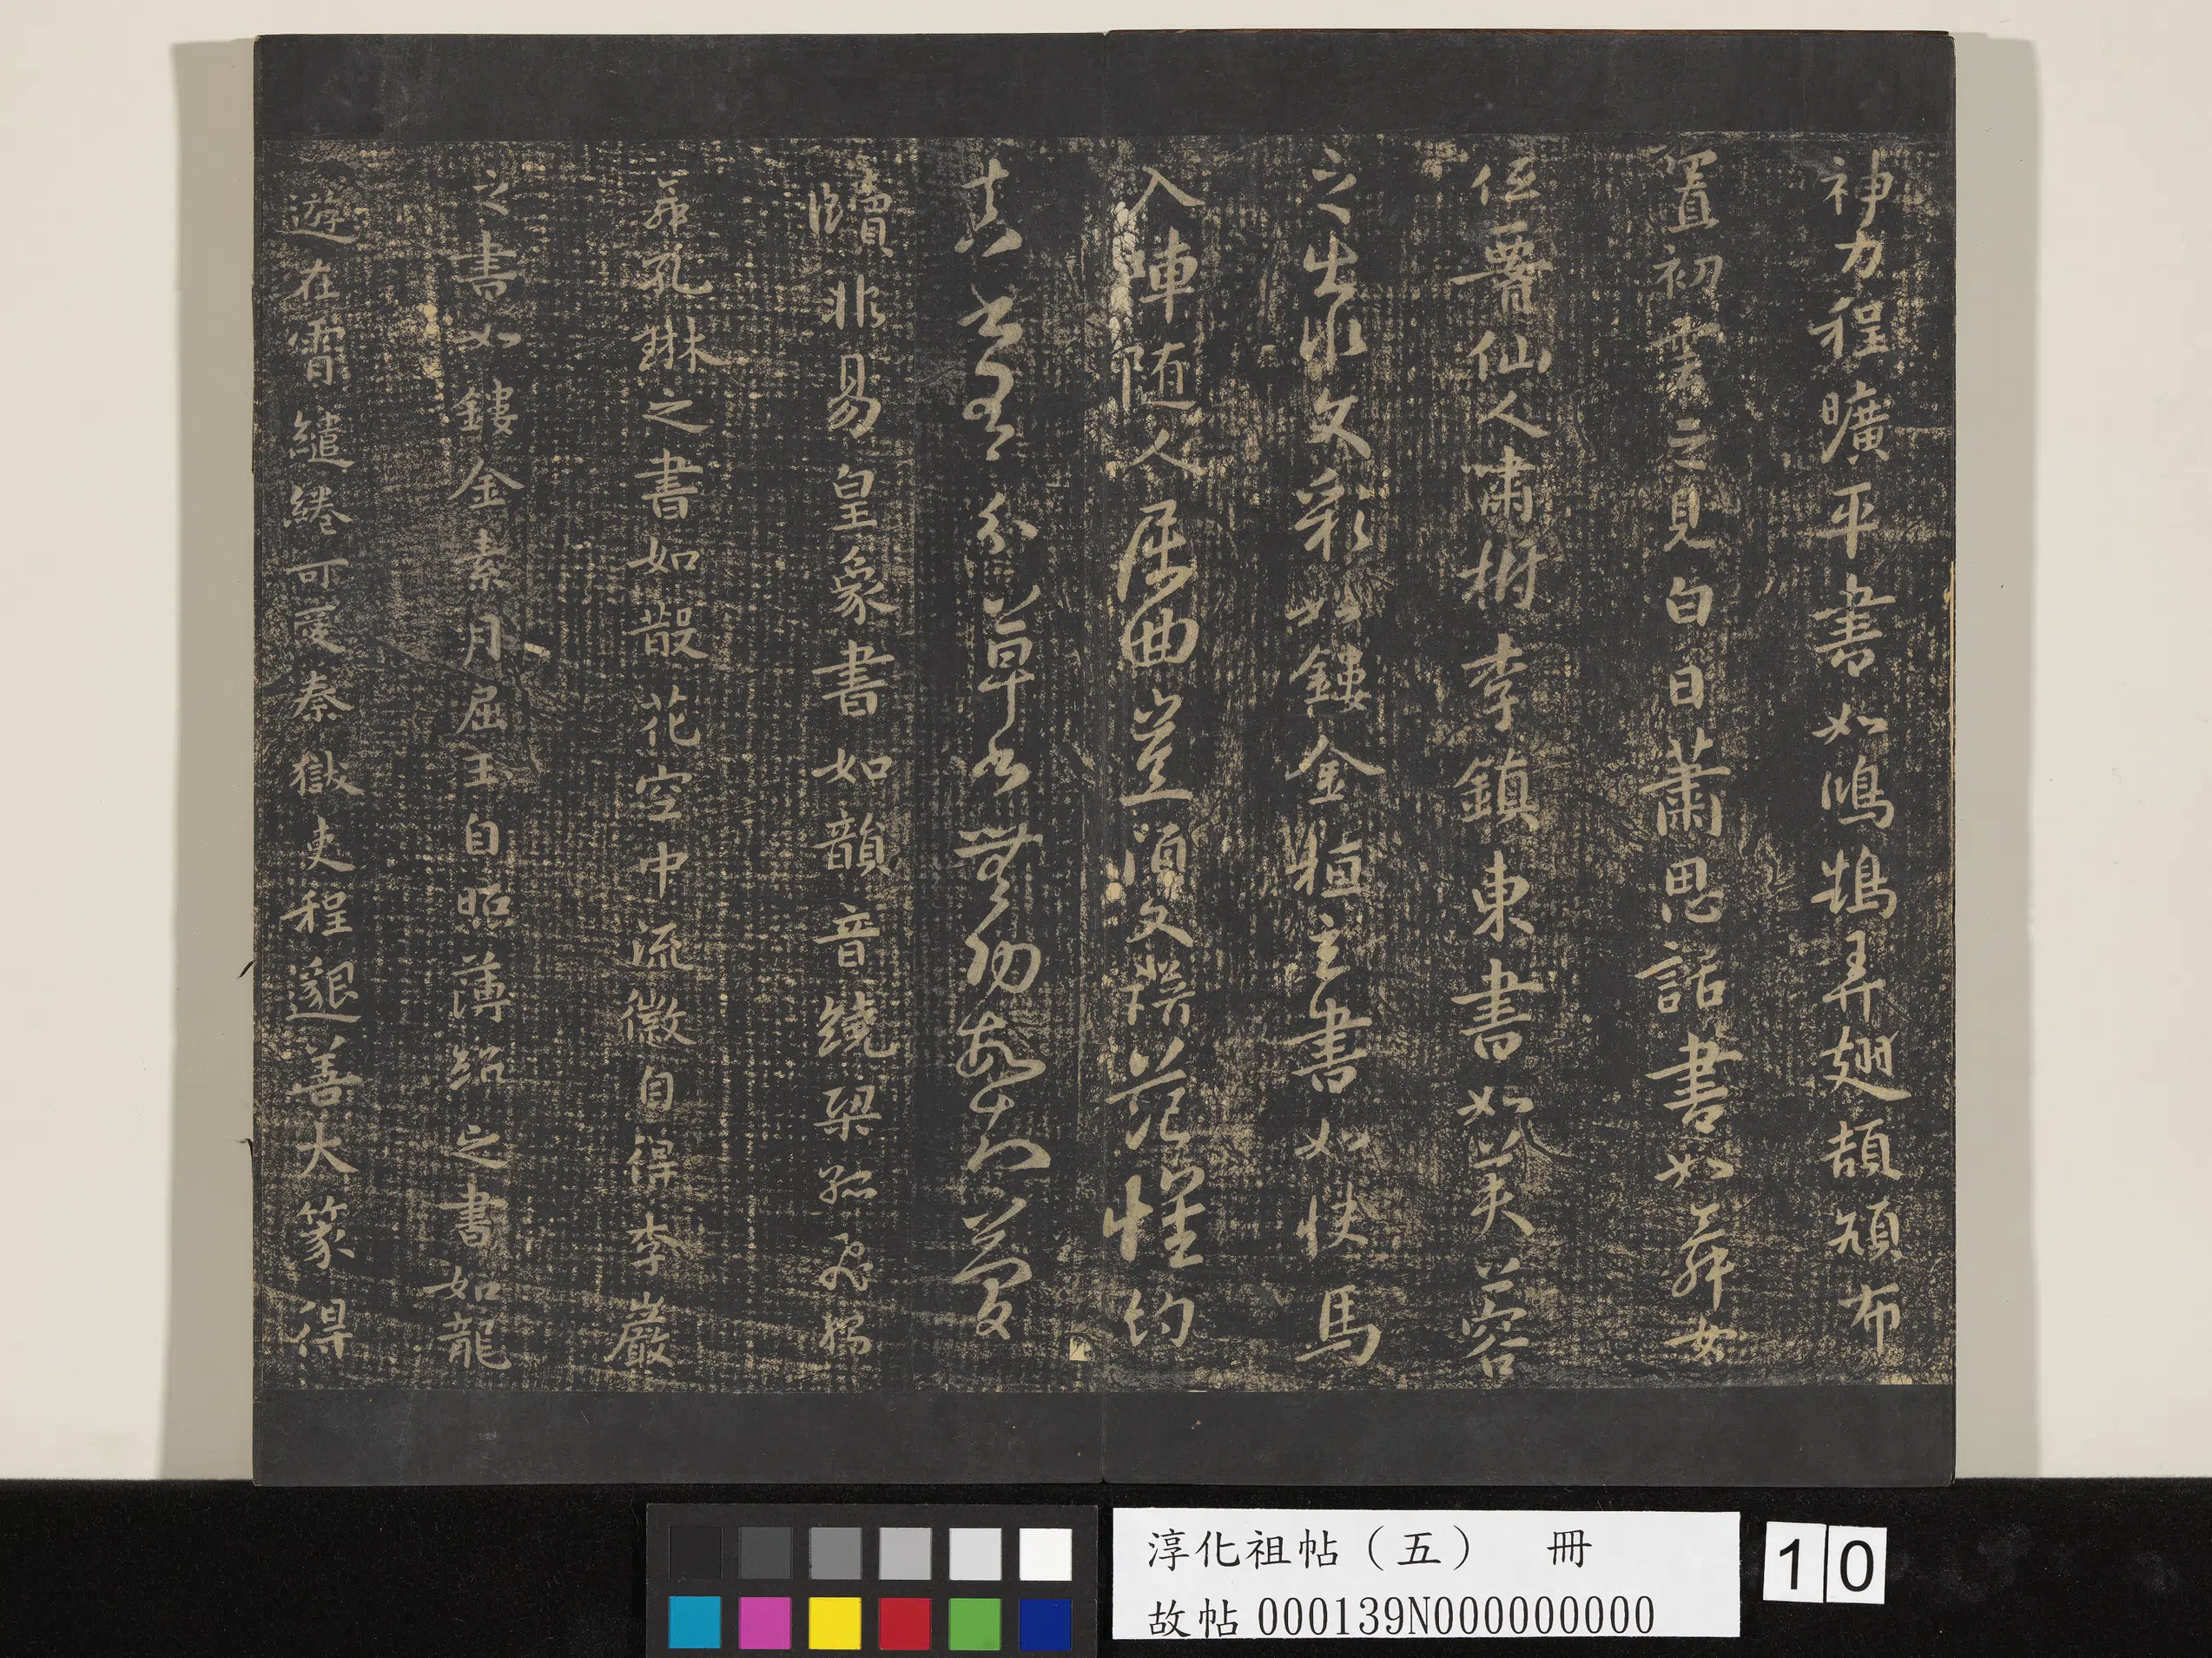 神力程曠平書如鴻鵠弄翅頡頏布
置初雲之見白日蕭思話書如舞女
低腰仙人嘯樹李鎮東書如芙蓉
之出水文彩如鏤金桓玄書如快馬
入陣随人屈曲豈須文譜范懷約
真書有分草書無功故知簡
牘非易皇象書如韻音繞梁孤飛獨
舞孔琳之書如散花空中流徽自得李巖
之書如鏤金素月屈玉自照薄紹之書如龍
遊在霄繾綣可愛秦獄吏程邈善大篆得
淳化祖帖（五） 冊
故帖000139N000000000
10